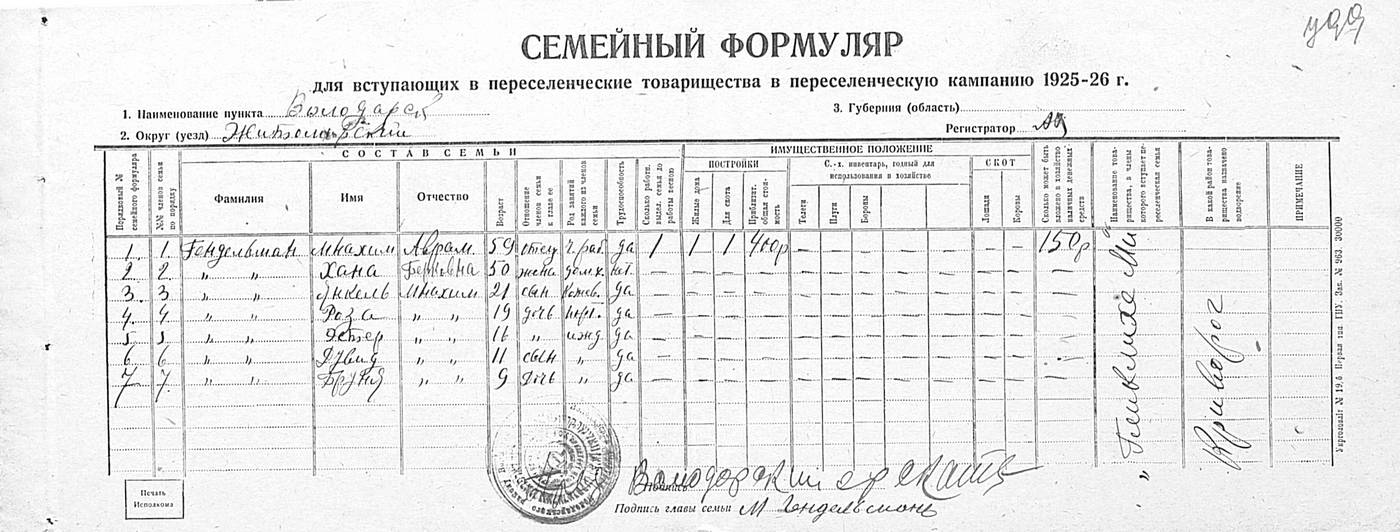 удд
СЕМЕЙНЫЙ ФОРМУЛЯР
для вступающих в переселенческие товарищества в переселенческую кампанию 1925-26 г.
1. Наименование пункта Володарск 3. Губерния (область)
2. Округ (уезд) Житомирский Регистратор
СОСТАВ СЕМЬИ ИМУЩЕСТВЕННОЕ ПОЛОЖЕНИЕ
ПОСТРОЙКИ С.-х. инвентарь, годный для использования в хозяйстве СКОТ
Порядковый № семейного формуляра №№ членов семьи по порядку Фамилия Имя Отчество Возраст Отношение членов семьи к главе ее Род занятий каждого из членов семьи Трудоспособность Сколько работн. выдел. семья до работы весною Жилые дома Для скота Приблизит. общая стоимость Телеги Плуги Бороны Лошади Коровы Сколько может быть вложено в хозяйство наличных денежных средств Наименование товарищества, в члены которого вступает переселенческая семья В какой район товарищества назначено водворение ПРИМЕЧАНИЕ
1. 1. Гендельман Мнахим Аврам. 59 отец ч. раб. да 1 1 1 400р — — — — — — — — 150р
2. 2. " " Хана Берковна 50 жена дом. х. нет — — — — — — — — — — — — —
3. 3 " " Янкель Мнахим 21 сын Кожев. да — — — — — — — — — — — — —
4. 4 " " Роза " " 19 дочь порт. да — — — — — — — — — — — — —
5 5 " " Эстер " " 16 " ижд да — — — — — — — — — — — — —
6 6 " " Дувид " " 11 сын " да — — — — — — — — — — — — —
7 7. " " Бруня " " 9 дочь " да — — — — — — — — — — — — —
Криворог
Печать Исполкома
Подпись
Подпись главы семьи М Гендельман
Укрголовліт № 19,6 Перша тип. ГПУ. Зак. № 963 30000